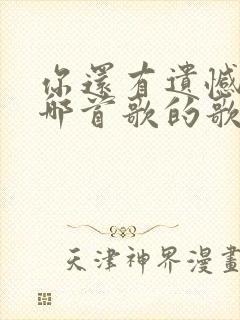 你還有遺憾
那首歌的歌
天津神界漫畫